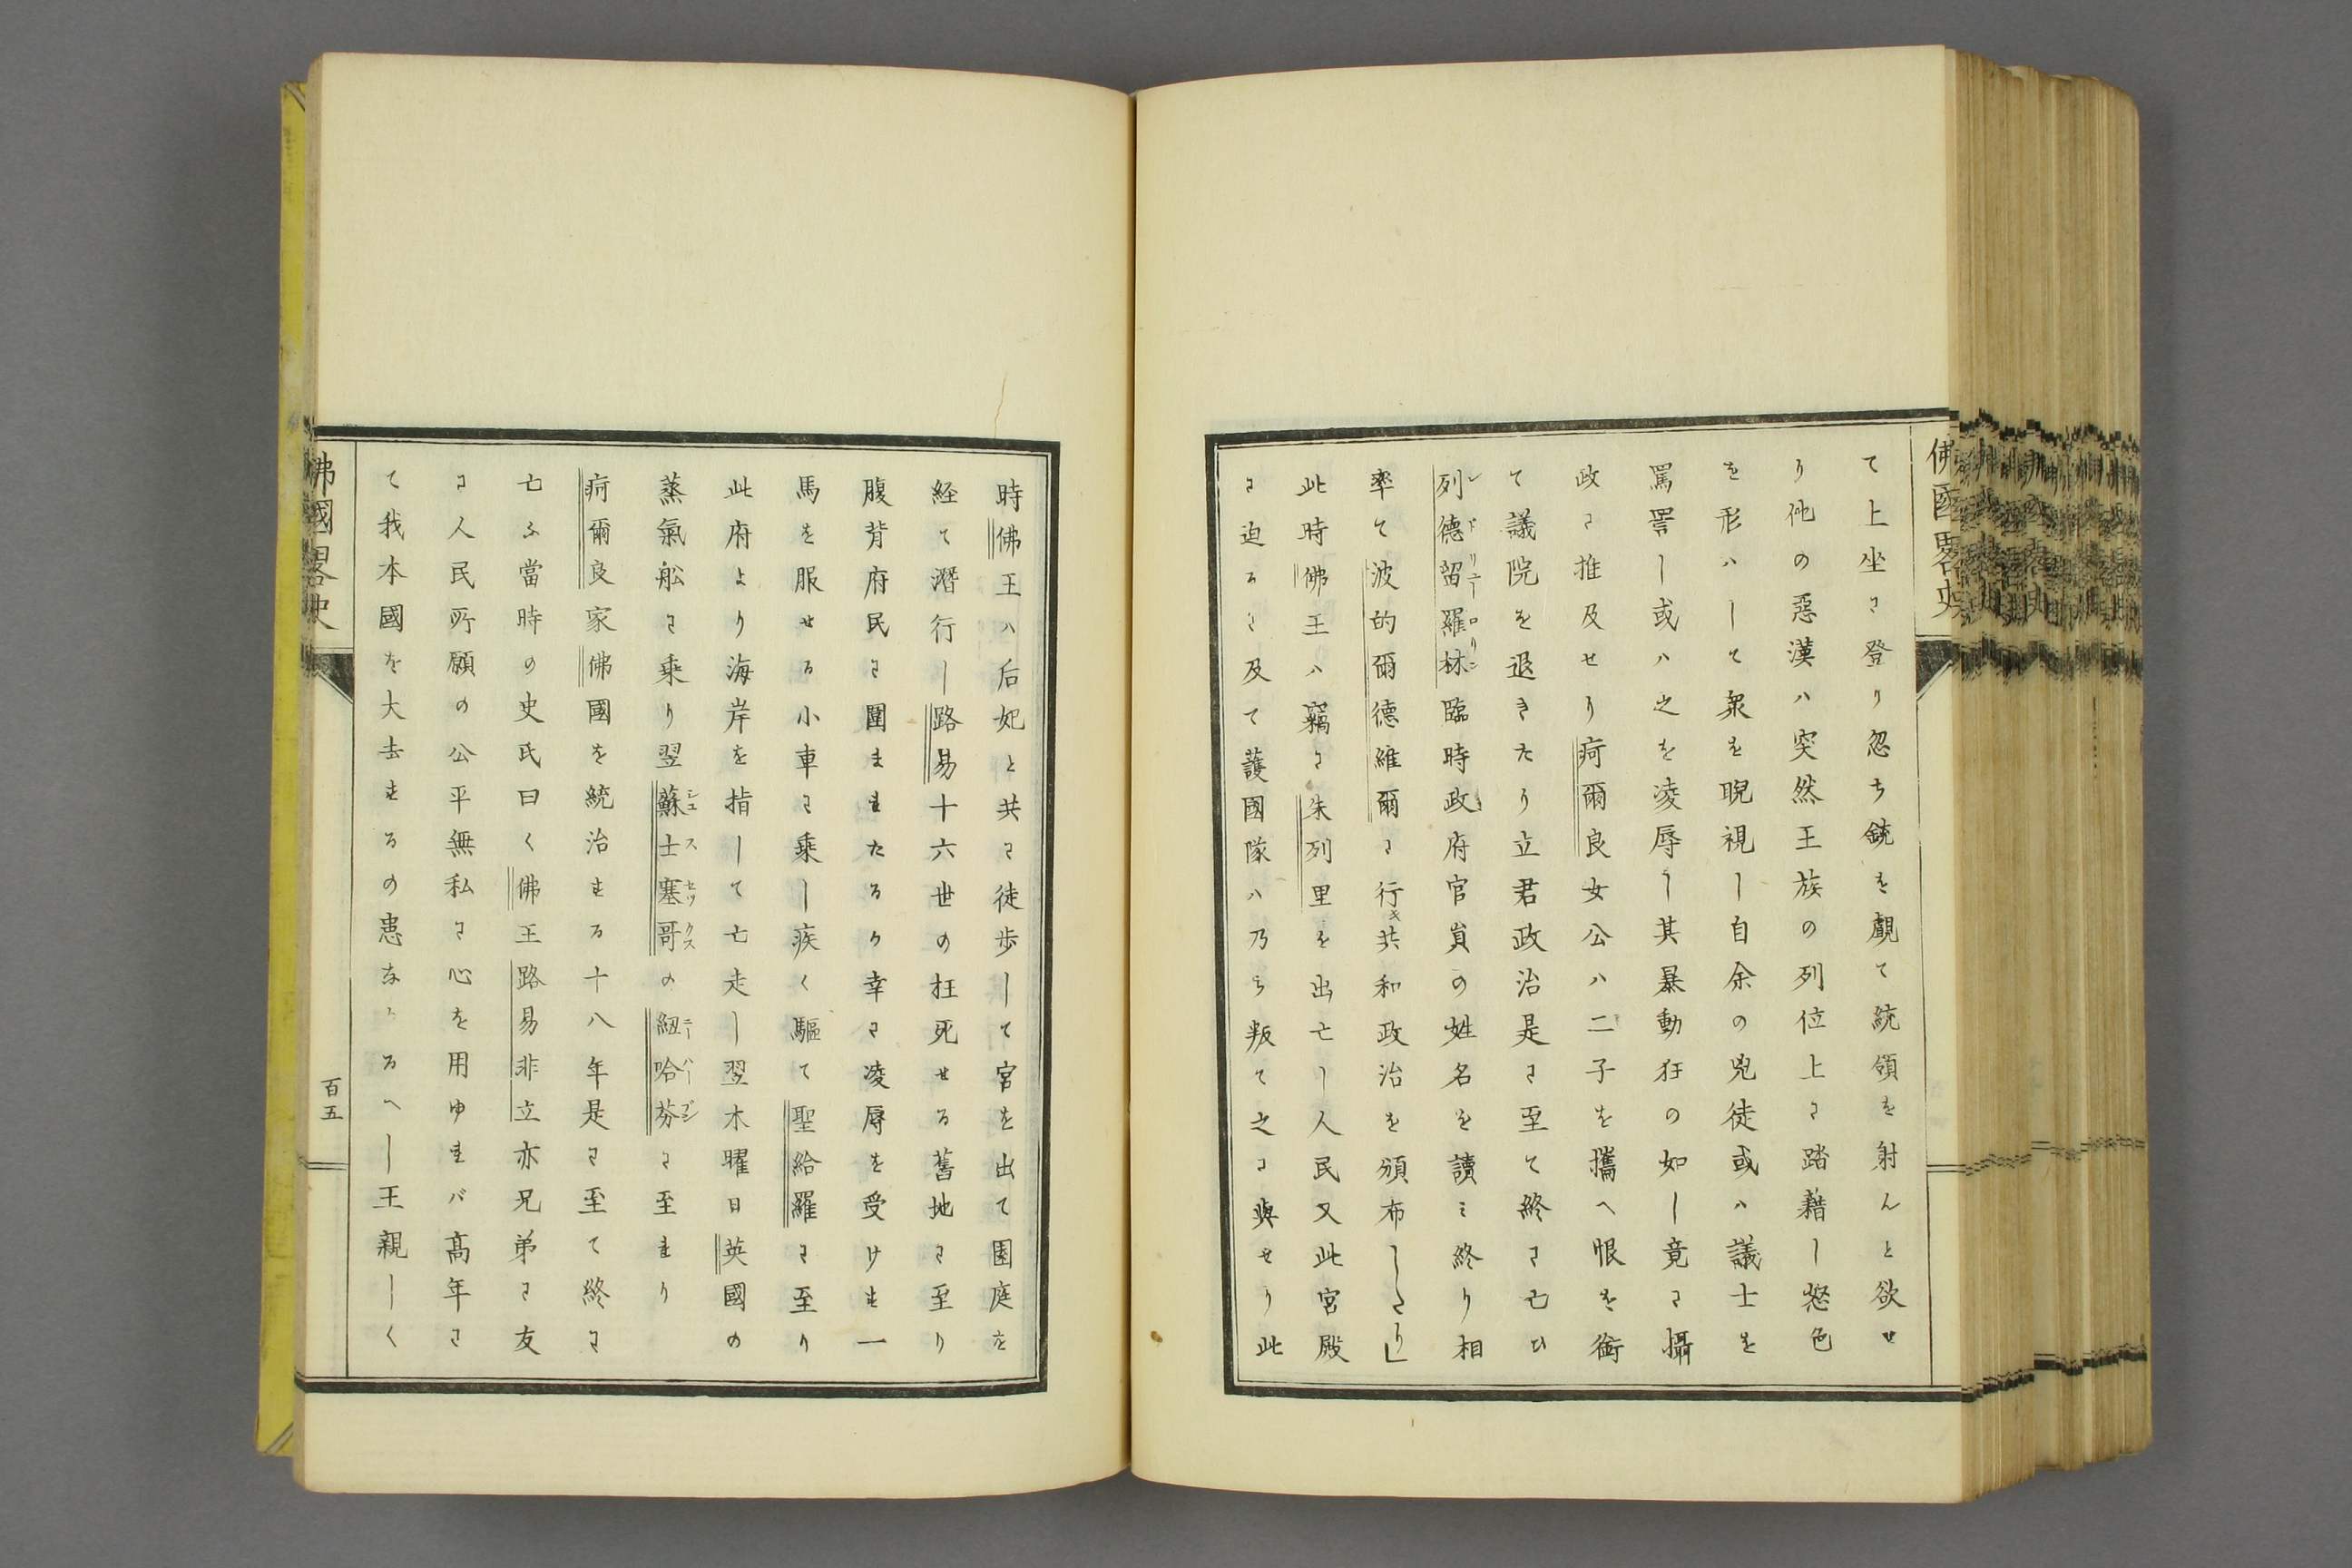 佛國畧史
て上坐に登り忽ち銃を覷て統領を射んと欲せ
り他の惡漢ハ突然王族の列位上に踏藉し怒色
を形ハして衆を睨視し自余の兇徒或ハ議士を
罵詈し或ハ之を凌辱し其暴動狂の如し竟に攝
政に推及せり疴爾良女公ハ二子を攜へ恨を銜
て議院を退きたり立君政治是に至て終に亡ひ
列德留羅林臨時政府官員の姓名を讀ミ終り相
率て波的爾德維爾に行キ共和政治を頒布したり」
此時佛王ハ竊に朱列里を出亡し人民又此宮殿
に迫るに及て護國隊ハ乃ち叛て之に與せり此
時佛王ハ后妃と共に徒歩して宮を出て園庭を
経て潛行し路易十六世の枉死せる舊地に至り
腹背府民に圍まれたるか幸に凌辱を受けす一
馬を服せる小車に乘し疾く驅て聖給羅に至り
此府より海岸を指して亡走し翌木曜日英國の
蒸氣舩に乘り翌蘇士塞哥の紐哈芬に至れり
疴爾良家佛國を統治する十八年是に至て終に
亡ふ當時の史氏曰く佛王路易非立亦兄弟に友
に人民所願の公平無私に心を用ゆれバ高年に
て我本國を大去するの患なかるへし王親しく
佛國畧史
百五